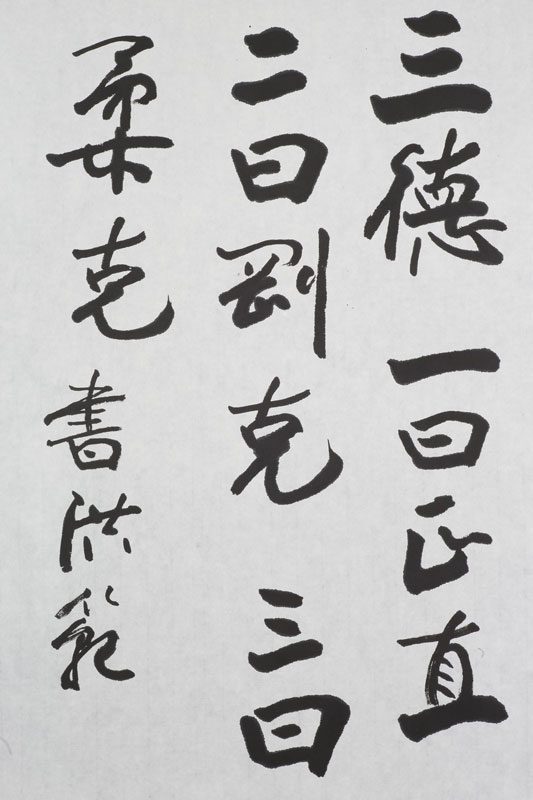 三德 一曰正直
二曰剛克 三曰
柔克 書洪範